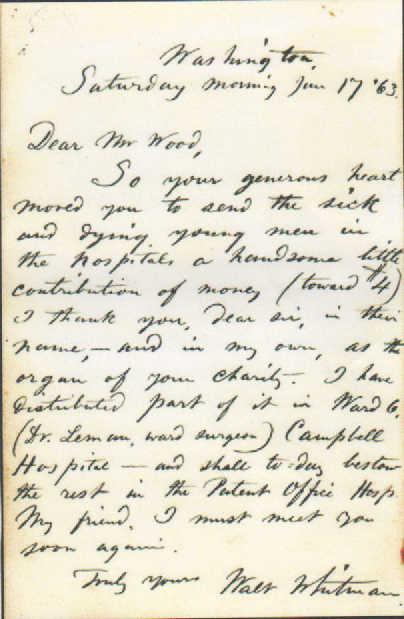 Washington,
Saturday morning Jan 17 '63.
Dear Mr Wood,
So your generous heart
moved you to send the sick
and dying young men in
the hospitals a handsome little
contribution of money (toward $4)
I thank you, dear sir, in their
name, – and in my own, as the
organ of your charity. I have
distributed part of it in Ward 6,
(Dr. Leman, ward surgeon) Campbell
Hospital – and shall to-day bestow
the rest in the Patent Office Hosp.
My friend, I must meet you
soon again.
Truly yours Walt Whitman